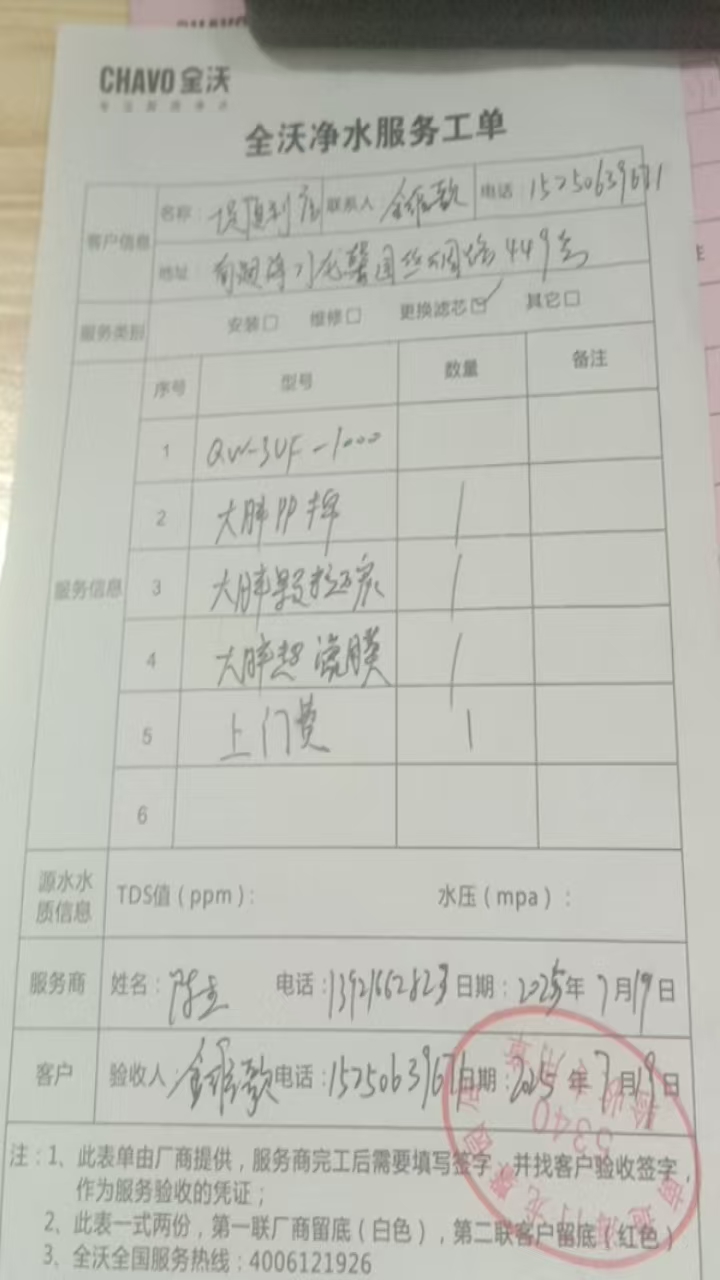 CHAVO 全沃
全沃净水服务工单
客户信息 名称: 联系人 金维歆 电话: 152506396
地址: 南通海门龙馨园 449号
服务类别 安装□ 维修□ 更换滤芯☑ 其它□
服务信息 序号 型号 数量 备注
1 QW-3UF-1000
2 大胖PP棉 1
3 大胖颗粒炭 1
4 大胖超滤膜 1
5 上门费 1
6
源水水质信息 TDS值(ppm): 水压(mpa):
服务商 姓名: 陈 电话: 13921662823 日期: 2025年7月19日
客户 验收人: 金维歆 电话: 152506396 日期: 2025年7月19日
注:1、此表单由厂商提供,服务商完工后需要填写签字,并找客户验收签字,
作为服务验收的凭证;
2、此表一式两份,第一联厂商留底(白色),第二联客户留底(红色)
3、全沃全国服务热线:4006121926
5340